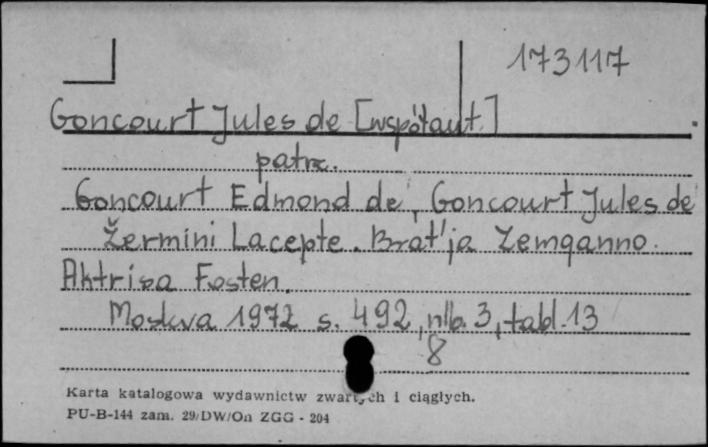 173117
Goncourt Jules de [współaut.]
patrz.
Goncourt Edmond de, Goncourt Jules de
Žermini Lacepte. Brat'ja Zemganno.
Aktrisa Fosten.
Moskva 1972 s. 492, nlb. 3, tabl. 13
8
Karta katalogowa wydawnictw zwartych i ciągłych.
PU-B-144 zam. 29/DW/On ZGG - 204